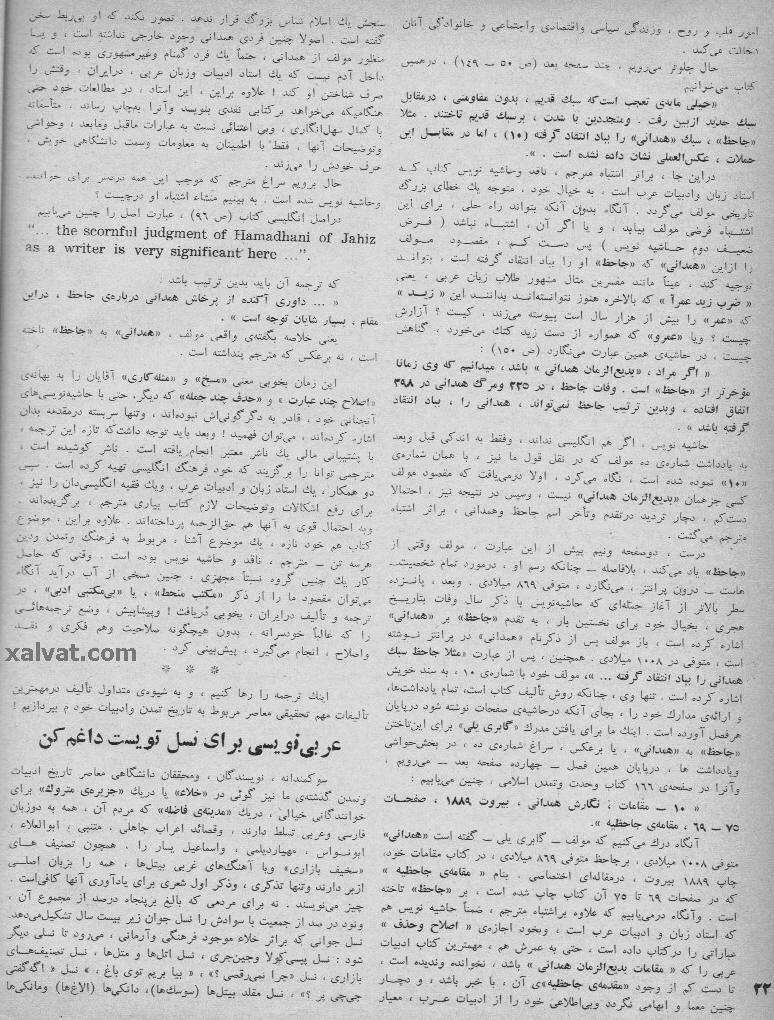 امور قلب و روح ، وزندگی سیاسی واقتصادی واجتماعی و خانوادگی آنان
دخالت می‌کند .
حال جلوتر می‌رویم ، چند صفحه بعد (ص ۵۰ – ۱۴۹) ، درهمین
کتاب می‌خوانیم
«خیلی مایه‌ی تعجب است‌که سبك قدیم ، بدون مقاومتی ، درمقابل
سبك جدید ازبین رفت . ومتجددین با شدت ، برسبك قدیم تاختند . مثلا
«جاحظ» ، سبك «همدانی» را بباد انتقاد گرفته (۱۰) ، اما در مقابل این
حملات ، عکس‌العملی نشان داده نشده است . » .
دراین جا ، براثر اشتباه مترجم ، ناقد وحاشیه نویس کتاب کــه
استاد زبان وادبیات عرب است ، به خیال خود ، متوجه یك خطای بزرگ
تاریخی مولف می‌گردد . آنگاه بدون آنکه بتواند راه حلی ، برای این
اشتباه فرضی مولف بیابد ، و یا اگر آن ، اشتباه نباشد ( فــرض
ضعیف دوم حــاشیه نویس ) پس دست کــم ، مقصود مــولف
را ازاین «همدانی» که «جاحظ» او را بباد انتقاد گرفته است ، بتوانــد
توجیه کند ، عیناً مانند مفسرین مثال مشهور طلاب زبان عربی ، یعنی
« ضرب زید عمرآ » که بالاخره هنوز نتوانسته‌انــد بداننــد این « زیــد »
که «عمر» را بیش از هزار سال است پیوسته می‌زند ، کیست ؟ آزارش
چیست ؟ ویا «عمرو» که همواره از دست زید کتك می‌خورد ، گناهش
چیست ، در حاشیه‌ی همین عبارت می‌نگارد (ص ۱۵۰) :
« اگر مراد ، «بدیع‌الزمان همدانی » باشد ، میدانیم که وی زمانا
مؤخرتر از «جاحظ» است . وفات جاحظ ، در ۲۳۵ ومرگ همدانی در ۳۹۸
اتفاق افتاده ، وبدین ترتیب جاحظ نمی‌تواند ، همدانی را ، بباد انتقاد
گرفته باشد » .
حاشیه نویس ، اگر هم انگلیسی نداند ، وفقط به اندکی قبل وبعد
به یادداشت شماره‌ی ده مولف که در نقل قول ما نیز ، با همان شماره‌ی
«۱۰» نموده شده است ، نگاه می‌کرد ، اولا درمی‌یافت که مقصود مولف
کسی جزهمان «بدیع‌الزمان همدانی» نیست ، وسپس در نتیجه نیز ، احتمالا
دست‌کم ، دچار تردید درتقدم وتأخر اسم جاحظ وهمدانی ، براثر اشتباه
مترجم می‌گشت .
درست ، دوصفحه ونیم پیش از این عبارت ، مولف وقتی از
«جاحظ» یاد می‌کند ، بلافاصله – چنانکه رسم او ، درمورد تمام شخصیت‌
هاست – درون پرانتز ، می‌نگارد ، متوفی ۸۶۹ میلادی . وبعد ، پانــزده
سطر بالاتر از آغاز جمله‌ای که حاشیه‌نویس با ذکر سال وفات بتاریــخ
هجری ، بخیال خود برای نخستین بار ، به تقدم «جاحظ» بر «همدانی»
اشاره کرده است ، باز مولف پس از ذکرنام «همدانی» در پرانتز نــوشته
است ، متوفی در ۱۰۰۸ میلادی . همچنین ، پس از عبارت «مثلا جاحظ سبك
همدانی را بباد انتقاد گرفته ... »، مولف خود با شماره‌ی ۱۰ ، به سند خویش
اشاره کرده است . تنها وی ، چنانکه روش تألیف کتاب است، تمام یادداشت‌ها،
و ارائه‌ی مدارك خود را ، بجای آنکه درحاشیه‌ی صفحات نوشته شود درپایان
هرفصل آورده است . اینك ما برای یافتن مدرك «گابری یلی» برای این‌تاختن
«جاحظ» به «همدانی» ، یا برعکس ، سراغ شماره‌ی ده ، در بخش‌حواشی
ویادداشت ها ، درپایان همین فصل – چهارده صفحه بعد – می‌رویم ،
وآنرا در صفحه‌ی ۱۶۶ کتاب وحدت وتمدن اسلامی ، چنین می‌یابیم :
« ۱۰ – مقامات ؛ نگارش همدانی ، بیروت ۱۸۸۹ ، صفحــات
۷۵ – ۶۹ ، مقامه‌ی جاحظیه » .
آنگاه درك می‌کنیم که مولف – گابری یلی – گفته است «همدانی»
متوفی ۱۰۰۸ میلادی ، برجاحظ متوفی ۸۶۹ میلادی ، در کتاب مقامات خود،
چاپ ۱۸۸۹ بیروت ، درمقاله‌ای اختصاصی . بنام « مقامه‌ی جاحظیه »
که در صفحات ۶۹ تا ۷۵ آن کتاب چاپ شده است ، بر «جاحظ» تاخته
است . وآنگاه درمی‌یابیم که علاوه براشتباه مترجم ، ضمناً حاشیه نویس هم
که استاد زبان و ادبیات عرب است ، وبخود اجازه‌ی « اصلاح وحذف »
عباراتی را درکتاب داده است ، حتی به عمرش هم ، مهمترین کتاب ادبیات
عربی را که « مقامات بدیع‌الزمان همدانی » باشد ، نخوانده وندیده است ،
تا دست کم از وجود «مقدمه‌ی جاحظیه»‌ی آن ، با خبر باشد ، و دچــار
چنین معما و ابهامی نگردد وبی‌اطلاعی خود را از ادبیات عــرب ، معیار
سنجش یك اسلام شناس بزرگ قرار ندهد . تصور نکند که او بی‌ربط سخن
گفته است . اصولا چنین فردی همدانی وجود خارجی نداشته است ، و یــا
منظور مولف از همدانی ، حتماً یك فرد گمنام وغیرمشهوری بوده است که
داخل آدم نیست که یك استاد ادبیات وزبان عربی ، درایران ، وقتش را
صرف شناختن او کند ! علاوه براین ، این استاد ، در مطالعات خود حتی
هنگامیکه می‌خواهد برکتابی نقدی بنویسد وآنرا به‌چاپ رساند . متأسفانه
با کمال سهل‌انگاری ، وبی اعتنائی نسبت به عبارات ماقبل ومابعد ، وحواشی
وتوضیحات آنها ، فقط با اطمینان به معلومات وسمت دانشگاهی خویش ،
حرف خودش را می‌زند .
حال برویم سراغ مترجم که موجب این همه دردسر برای خواننده
وحاشیه نویس شده است . به بینیم منشاء اشتباه او درچیست ؟
دراصل انگلیسی کتاب (ص ۹۶) ، عبارت اصل را چنین می‌یابیم
"... the scornful judgment of Hamadhani of Jahiz
as a writer is very significant here ...".
که ترجمه آن باید بدین ترتیب باشد :
« ... داوری آکنده از پرخاش همدانی درباره‌ی جاحظ ، دراین
مقام ، بسیار شایان توجه است » .
یعنی خلاصه بگفته‌ی واقعی مولف ، «همدانی » به «جاحظ» تاخته
است ، نه برعکس که مترجم پنداشته است .
این زمان بخوبی معنی «مسخ» و «مثله‌کاری» آقایان را به بهانه‌ی
«اصلاح چند عبارت » و «حذف چند جمله» که دیگر، حتی با حاشیه‌نویسی‌های
آنچنانی خود ، قادر به دگرگونی‌اش نبوده‌اند ، وتنها سربسته درمقدمه بدان
اشاره کرده‌اند ، می‌توان فهمید ! وبعد باید توجه داشت‌که تازه این ترجمه ،
با پشتیبانی مالی یك ناشر معتبر انجام‌یافته است . ناشر کوشیده است ،
مترجمی توانا را برگزیند که خود فرهنگ انگلیسی تهیه کرده است . سپس
دو همکار ، یك استاد زبان و ادبیات عرب ، ویك فقیه انگلیسی‌دان را نیز ،
برای رفع اشکالات وتوضیحات لازم کتاب بیاری مترجم ، برگزیده‌اند .
وبه احتمال قوی به آنها هم حق‌الزحمه پرداخته‌اند . علاوه براین ، موضوع
کتاب هم خود تازه ، یك موضوع آشنا ، مربوط به فرهنگ وتمدن ودین
هرسه تن – مترجم ، ناقد و حاشیه نویس بوده است . وقتی که حاصل
کار یك چنین گروه نسبتاً مجهزی ، چنین مسخی از آب درآید آنگاه
می‌توان مقصود ما را از ذکر «مکتب منحط» ، یا «بی‌مکتبی ادبی» ، در
ترجمه و تألیف درایران ، بخوبی دریافت ! وپیشاپیش ، وضع ترجمه‌هائــی
را که غالباً خودسرانه ، بدون هیچگونه صلاحیت وهم فکری و نقــد
واصلاح ، انجام می‌گیرد ، پیش‌بینی کرد .
xalvat.com
* * *
اینك ترجمه را رها کنیم ، و به شیوه‌ی متداول تألیف درمهمترین
تألیفات مهم تحقیقی معاصر مربوط به تاریخ تمدن وادبیات خود م بپردازیم !
عربی‌نویسی برای نسل تویست داغم‌کن
سوکمندانه ، نویسندگان ، ومحققان دانشگاهی معاصر تاریخ ادبیات
وتمدن گذشته‌ی ما نیز گوئی در «خلاء» یا دریك «جزیره‌ی متروك» برای
خوانندگانی خیالی ، دریك «مدینه‌ی فاضله» که مردم آن ، همه به دوزبان
فارسی وعربی تسلط دارند ، وقصائد اعراب جاهلی . متنبی ، ابوالعلاء ،
ابونــواس ، مهیاردیلمی ، واسماعیل یسار را . همچون تصنیف هــای
«سخیف بازاری» ویا آهنگ‌های غربی بیتل‌ها ، همه را بزبان اصلــی
ازبر دارند وتنها تذکری ، وذکر اول شعری برای یادآوری آنها کافی‌است .
چیز می‌نویسند . نه برای مردمی که بالغ برپنجاه درصد از مجموع آن ،
ونود در صد از جمعیت با سوادش را نسل جوان زیر بیست سال تشکیل‌می‌دهد.
نسل جوانی که براثر خلاء موجود فرهنگی وآرمانی ، می‌رود تا نسلی دیگر
شود : نسل پپسی‌کولا وجین‌جری ، نسل اتل‌ها و متل‌ها ، نسل تصنیف‌هــای
بازاری ، نسل «چرا نمی‌رقصی ؟» ، « بیا بریم توی باغ ، » نسل « اگه‌گفتی
چی‌چی پر ؟» ، نسل مقلد بیتل‌ها (سوسك‌ها)، دانکی‌ها (الاغ‌ها) ومانکی‌ها
۲۲